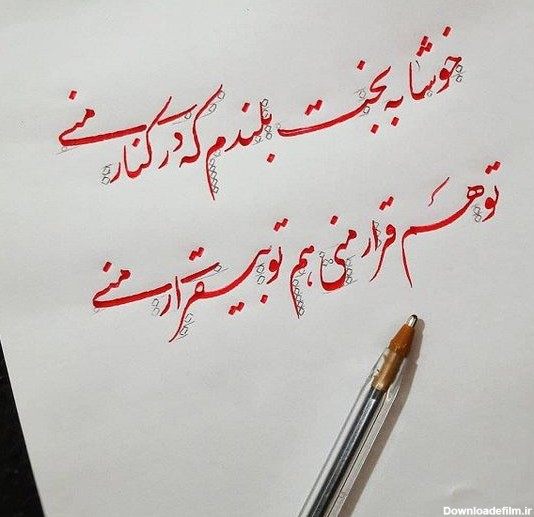 خوشا به بخت بلندم که در کنار منی
تو هم قرار منی هم تو بیقرار منی
Downloadefilm.ir